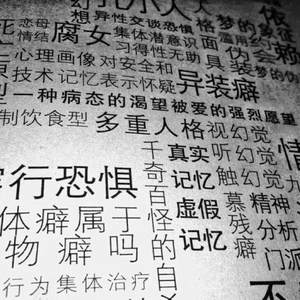 幻
小人
依
恋母
想异性交谈恐惧
梦的象征
死
情结
腐女
集体潜意识
滥用
习得性无助
伪会赖
亡
心理画像对安全和
具装梦的伪
技术记忆表示怀疑
异装癖
型一种病态的渴望被爱的强烈愿望
制饮食型
多重人格
视幻觉
千奇百怪的自
真实
记忆
虚假
记忆
听幻觉
触幻觉
情
行恐惧
慕残癖
精神
分析
门派
体癖属于
物癖吗
行为集体治疗
不